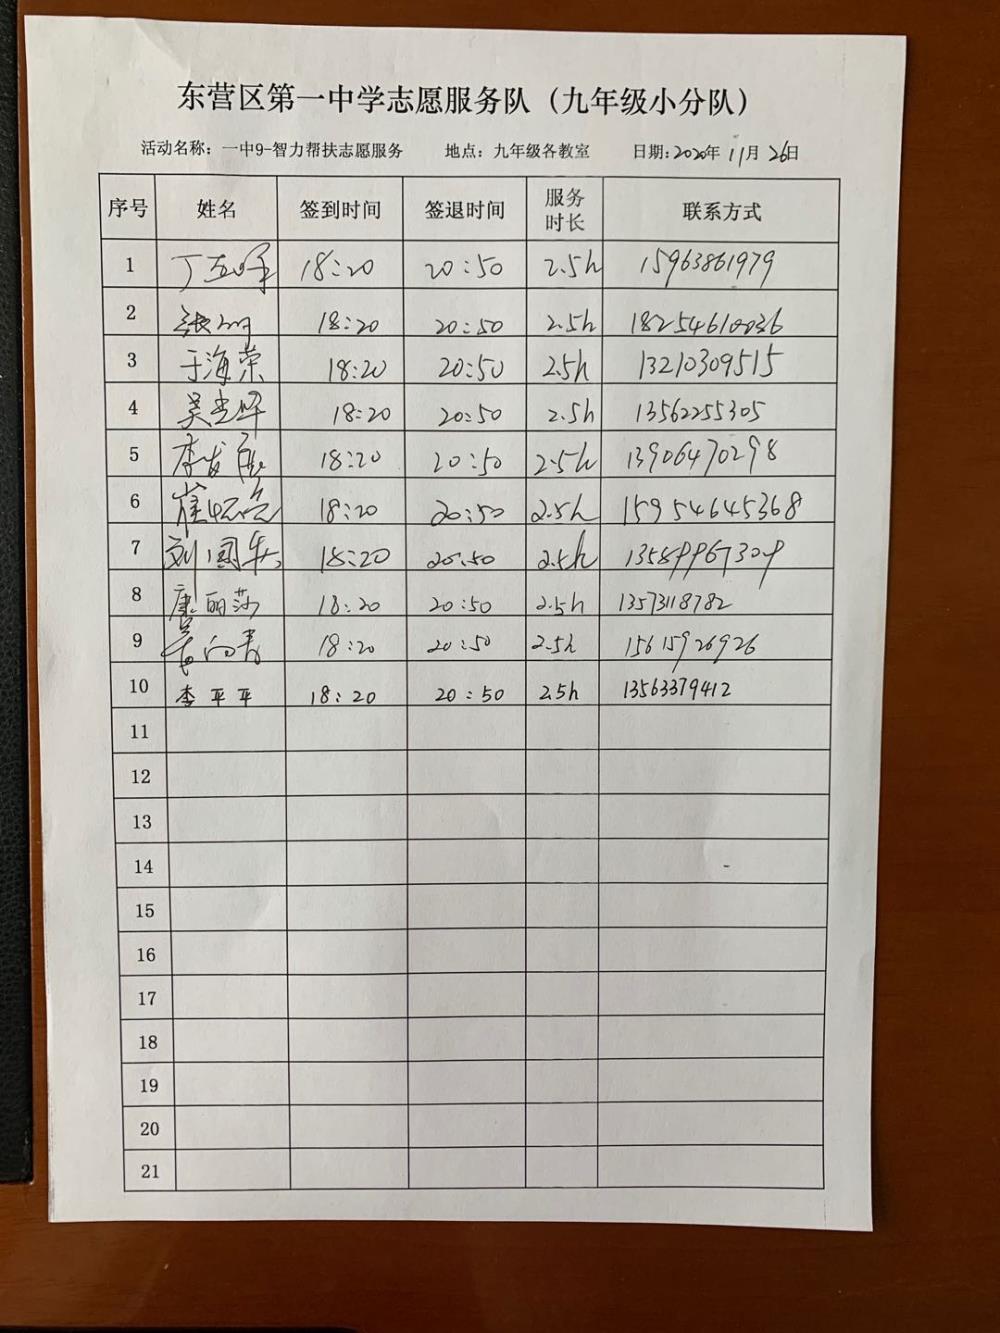 东营区第一中学志愿服务队（九年级小分队）
活动名称：一中9-智力帮扶志愿服务 地点：九年级各教室 日期：2020年 11月 26日
序号 姓名 签到时间 签退时间 服务时长 联系方式
1 18:20 20:50 2.5h 15963861979
2 18:20 20:50 2.5h 18254610036
3 于海荣 18:20 20:50 2.5h 13210309515
4 18:20 20:50 2.5h 13562255305
5 18:20 20:50 2.5h 13906470298
6 18:20 20:50 2.5h 15954645368
7 18:20 20:50 2.5h
8 康丽莎 18:20 20:50 2.5h 13573118782
9 18:20 20:50 2.5h 15615926926
10 李平平 18:20 20:50 2.5h 13563379412
11
12
13
14
15
16
17
18
19
20
21